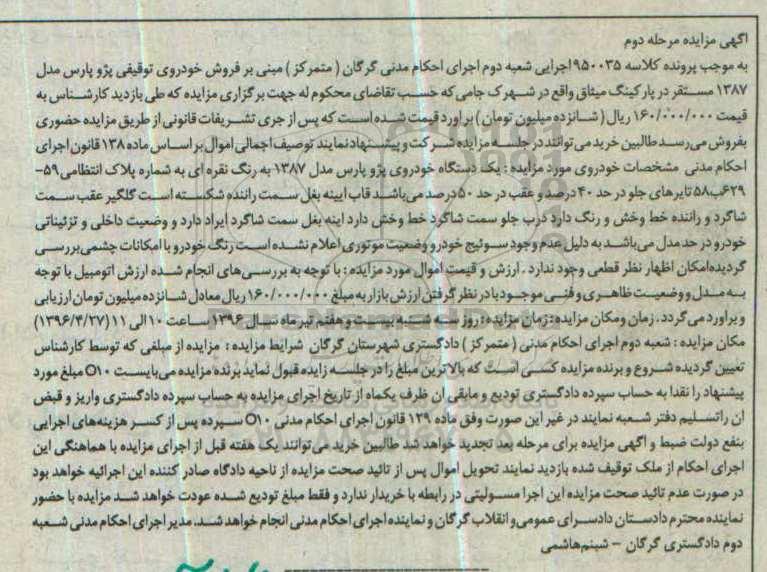 اگهی مزایده مرحله دوم
به موجب پرونده کلاسه ۹۵۰۰۳۵ اجرایی شعبه دوم اجرای احکام مدنی گرگان ( متمرکز ) مبنی بر فروش خودروی توقیفی پژو پارس مدل
۱۳۸۷ مستقر در پارکینگ میثاق واقع در شهرک جامی که حسب تقاضای محکوم له جهت برگزاری مزایده که طی بازدید کارشناس به
قیمت ۱۶۰/۰۰۰/۰۰۰ ریال ( شانزده میلیون تومان ) براورد قیمت شده است که پس از جری تشریفات قانونی از طریق مزایده حضوری
بفروش می رسد طالبین خرید می توانند در جلسه مزایده شرکت و پیشنهاد نمایند توصیف اجمالی اموال بر اساس ماده ۱۳۸ قانون اجرای
احکام مدنی مشخصات خودروی مورد مزایده : یک دستگاه خودروی پژو پارس مدل ۱۳۸۷ به رنگ نقره ای به شماره پلاک انتظامی ۵۹-
۶۲۹ب۵۸ تایرهای جلو در حد ۴۰ درصد و عقب در حد ۵۰ درصد می باشد قاب ایینه بغل سمت راننده شکسته است گلگیر عقب سمت
شاگرد و راننده خط وخش و رنگ دارد درب جلو سمت شاگرد خط وخش دارد اینه بغل سمت شاگرد ایراد دارد و وضعیت داخلی و تزئیناتی
خودرو در حد مدل می باشد به دلیل عدم وجود سوئیچ خودرو وضعیت موتوری اعلام نشده است رنگ خودرو با امکانات چشمی بررسی
گردیده امکان اظهار نظر قطعی وجود ندارد . ارزش و قیمت اموال مورد مزایده : با توجه به بررسی های انجام شده ارزش اتومبیل با توجه
به مدل و وضعیت ظاهری وفنی موجود با در نظر گرفتن ارزش بازار به مبلغ ۱۶۰/۰۰۰/۰۰۰ ریال معادل شانزده میلیون تومان ارزیابی
و براورد می گردد . زمان ومکان مزایده : زمان مزایده : روز سه شنبه بیست وهفتم تیر ماه سال ۱۳۹۶ ساعت ۱۰ الی ۱۱ (۱۳۹۶/۴/۲۷)
مکان مزایده : شعبه دوم اجرای احکام مدنی ( متمرکز ) دادگستری شهرستان گرگان شرایط مزایده : مزایده از مبلغی که توسط کارشناس
تعیین گردیده شروع و برنده مزایده کسی است که بالاترین مبلغ را در جلسه زایده قبول نماید برنده مزایده می بایست ۱۰٪ مبلغ مورد
پیشنهاد را نقدا به حساب سپرده دادگستری تودیع و مابقی ان ظرف یکماه از تاریخ اجرای مزایده به حساب سپرده دادگستری واریز و قبض
ان راتسلیم دفتر شعبه نمایند در غیر این صورت وفق ماده ۱۲۹ قانون اجرای احکام مدنی ۱۰٪ سپرده پس از کسر هزینه های اجرایی
بنفع دولت ضبط و اگهی مزایده برای مرحله بعد تجدید خواهد شد طالبین خرید می توانند یک هفته قبل از اجرای مزایده با هماهنگی این
اجرای احکام از ملک توقیف شده بازدید نمایند تحویل اموال پس از تائید صحت مزایده از ناحیه دادگاه صادر کننده این اجرائیه خواهد بود
در صورت عدم تائید صحت مزایده این اجرا مسولیتی در رابطه با خریدار ندارد و فقط مبلغ تودیع شده عودت خواهد شد مزایده با حضور
نماینده محترم دادستان دادسرای عمومی و انقلاب گرگان و نماینده اجرای احکام مدنی انجام خواهد شد. مدیر اجرای احکام مدنی شعبه
دوم دادگستری گرگان - شبنم هاشمی